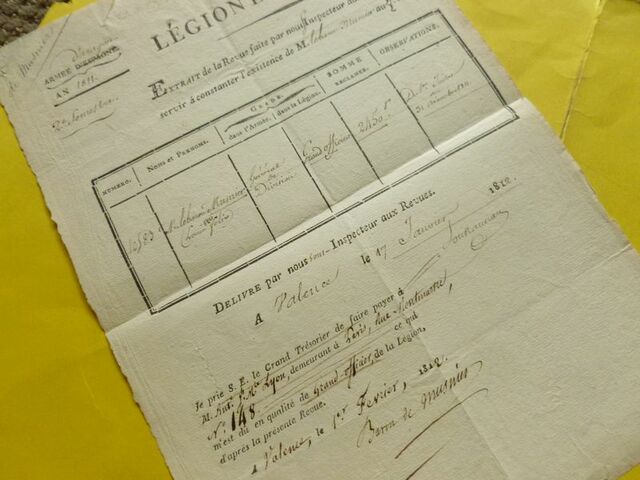 LÉGION
ARMÉE D'ESPAGNE
AN 1811
2e Semestre
EXTRAIT de la Revue faite par nous Inspecteur au
servir à constater l'existence de M. le baron Musnier au
NUMÉRO.
NOMS ET PRÉNOMS.
GRADE
dans l'Armée.
dans la Légion.
SOMME
RÉCLAMÉE.
OBSERVATIONS.
12583
M. le baron Musnier
Louis
Général
de
Division
Grand officier
2450 f
31 Décembre 1811
DÉLIVRÉ par nous Sous-Inspecteur aux Revues.
A Valence le 17 Janvier 1812
Je prie S. E. le Grand Trésorier de faire payer à
M. Ant. Lyon, demeurant à Paris, Rue Montmartre,
N° 148 ce qui
m'est du en qualité de Grand officier, de la Légion,
d'après la présente Revue.
A Valence, le 1er Février, 1812
Baron de Musnier